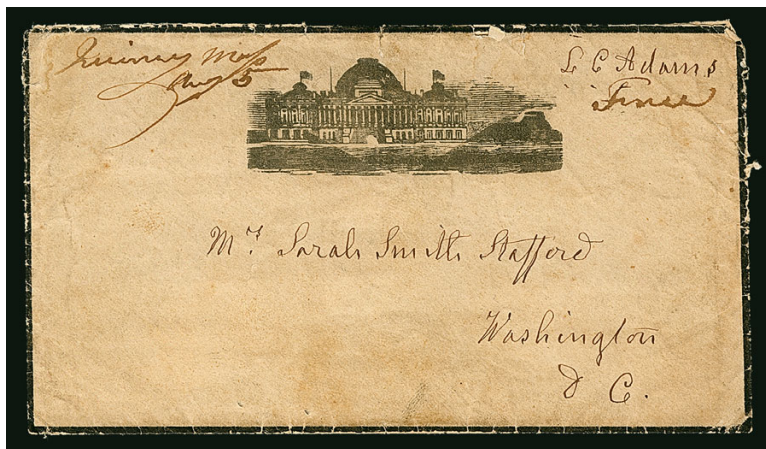 Quincy Mass
Aug 5
L C Adams
Free
Mrs. Sarah Smith Stafford
Washington
D C.